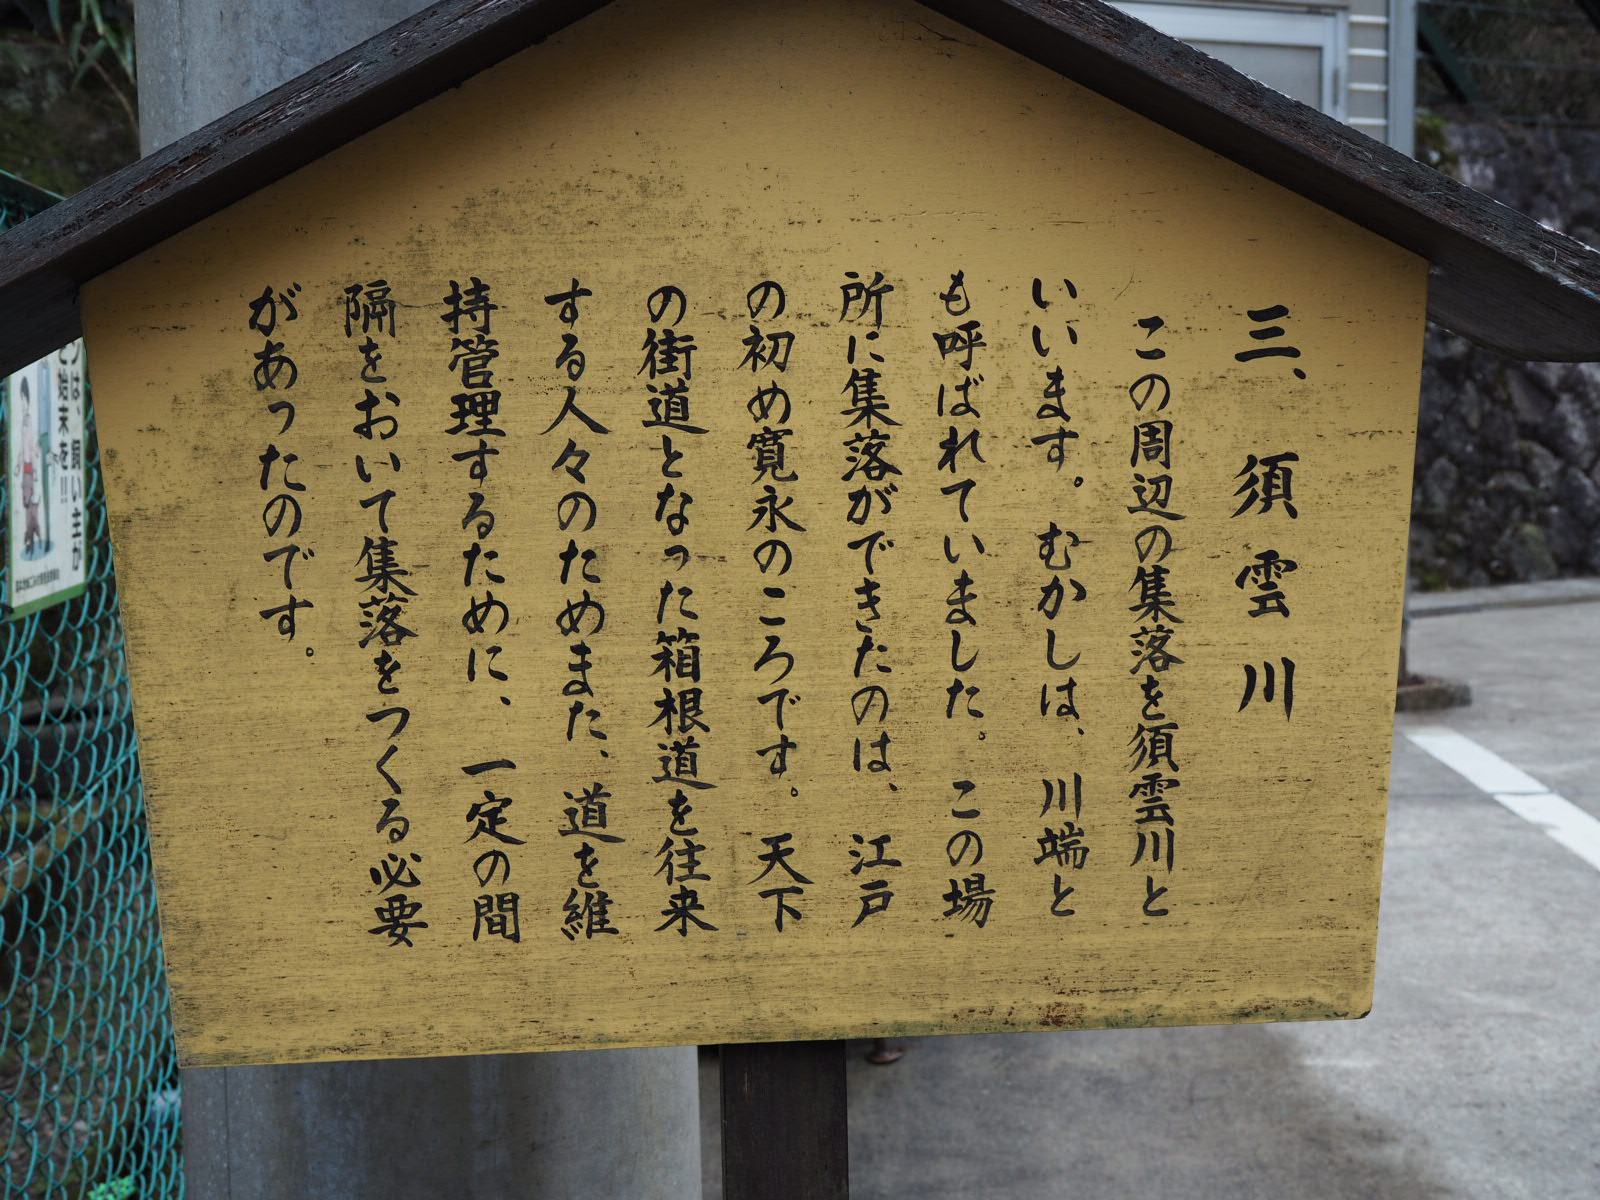 三、須雲川
この周辺の集落を須雲川と
いいます。むかしは、川端と
も呼ばれていました。この場
所に集落ができたのは、江戸
の初め寛永のころです。天下
の街道となった箱根道を往来
する人々のためまた、道を維
持管理するために、一定の間
隔をおいて集落をつくる必要
があったのです。
は、飼い主が
始末を!!